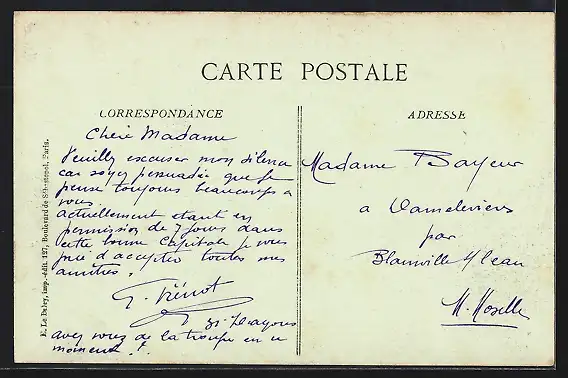 CARTE POSTALE
CORRESPONDANCE
ADRESSE
Chère Madame
Veuilly excuser mon silence
car soyez persuadée que je
pense toujours beaucoups a
vous.
actuellement etant en
permission de 7 jours dans
cette bonne Capitale je vous
prie d'accepter toutes mes
amitiés.
31e Dragons
avez vous de la troupe en ce
moment ?
Madame Bayeur
a Dameleviers
par
Blainville s/ l'eau
M. Moselle
E. Le Deley, imp.-édit. 127, Boulevard de Sébastopol, Paris.